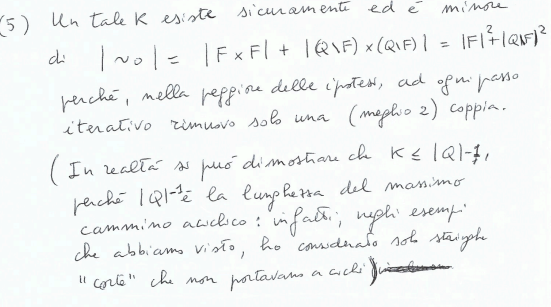 (5) Un tale K esiste sicuramente ed è minore
di |~₀| = |F×F| + |(Q\F)×(Q\F)| = |F|²+|Q\F|²
perché, nella peggiore delle ipotesi, ad ogni passo
iterativo rimuovo solo una (meglio 2) coppia.
(In realtà si può dimostrare che K ≤ |Q|-1,
perché |Q|-1 è la lunghezza del massimo
cammino aciclico: infatti, negli esempi
che abbiamo visto, ho considerato solo stringhe
"corte" che non portavano a cicli)